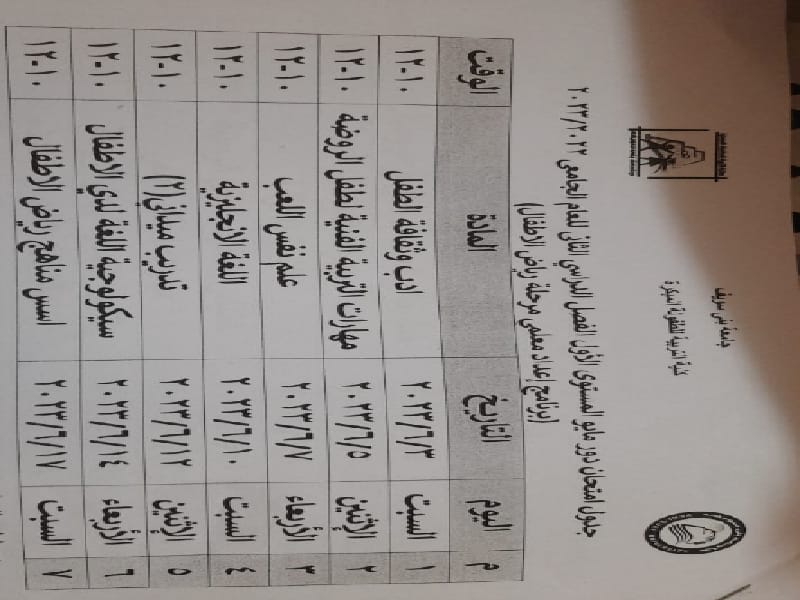 جامعة بني سويف
كلية التربية للطفولة المبكرة
جدول امتحان دور مايو المستوى الأول الفصل الدراسي الثاني للعام الجامعي ٢٠٢٣/٢٠٢٢
(برنامج إعداد معلمي مرحلة رياض الأطفال)
م اليوم التاريخ المادة الوقت
١ السبت ٢٠٢٣/٦/٣ ادب وثقافة الطفل ١٢-١٠
٢ الإثنين ٢٠٢٣/٦/٥ مهارات التربية الفنية لطفل الروضة ١٢-١٠
٣ الأربعاء ٢٠٢٣/٦/٧ علم نفس اللعب ١٢-١٠
٤ السبت ٢٠٢٣/٦/١٠ اللغة الانجليزية ١٢-١٠
٥ الإثنين ٢٠٢٣/٦/١٢ تدريب ميداني(٢) ١٢-١٠
٦ الأربعاء ٢٠٢٣/٦/١٤ سيكولوجية اللغة لدي الاطفال ١٢-١٠
٧ السبت ٢٠٢٣/٦/١٧ اسس مناهج رياض الاطفال ١٢-١٠